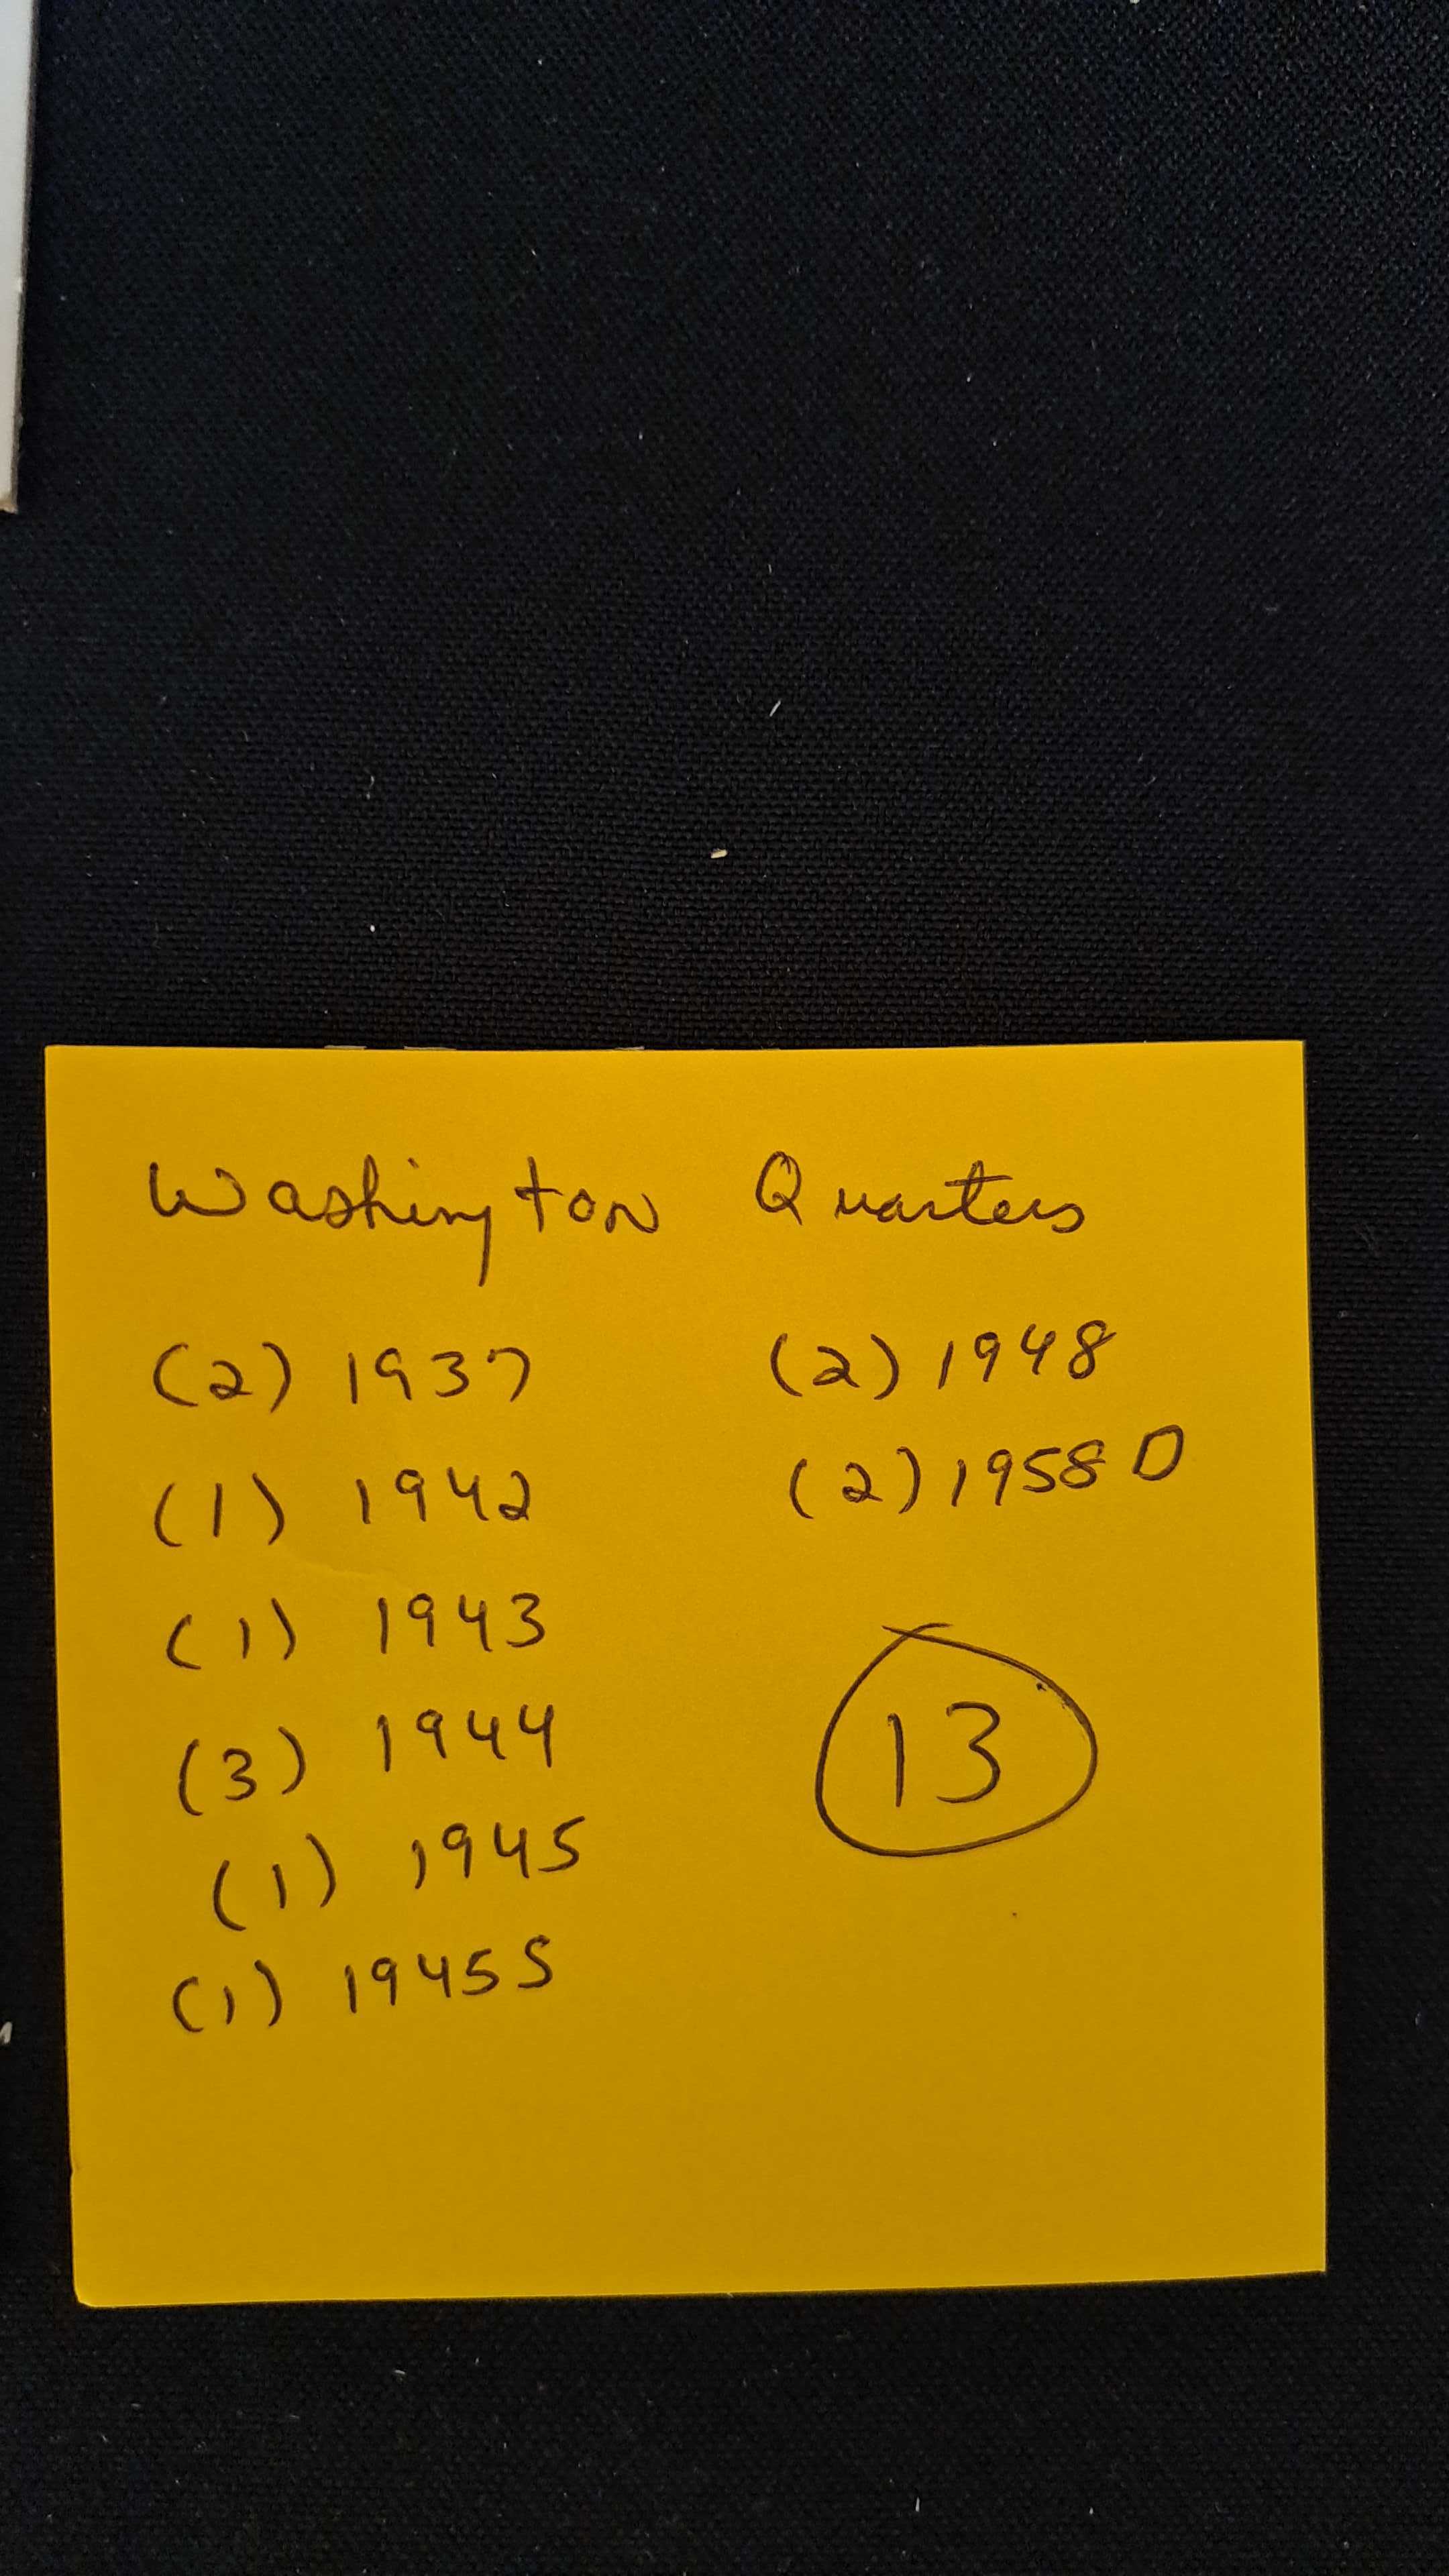 Washington Quarters
(2) 1937
(1) 1942
(1) 1943
(3) 1944
(1) 1945
(1) 1945 S
(2) 1948
(2) 1958 D
13